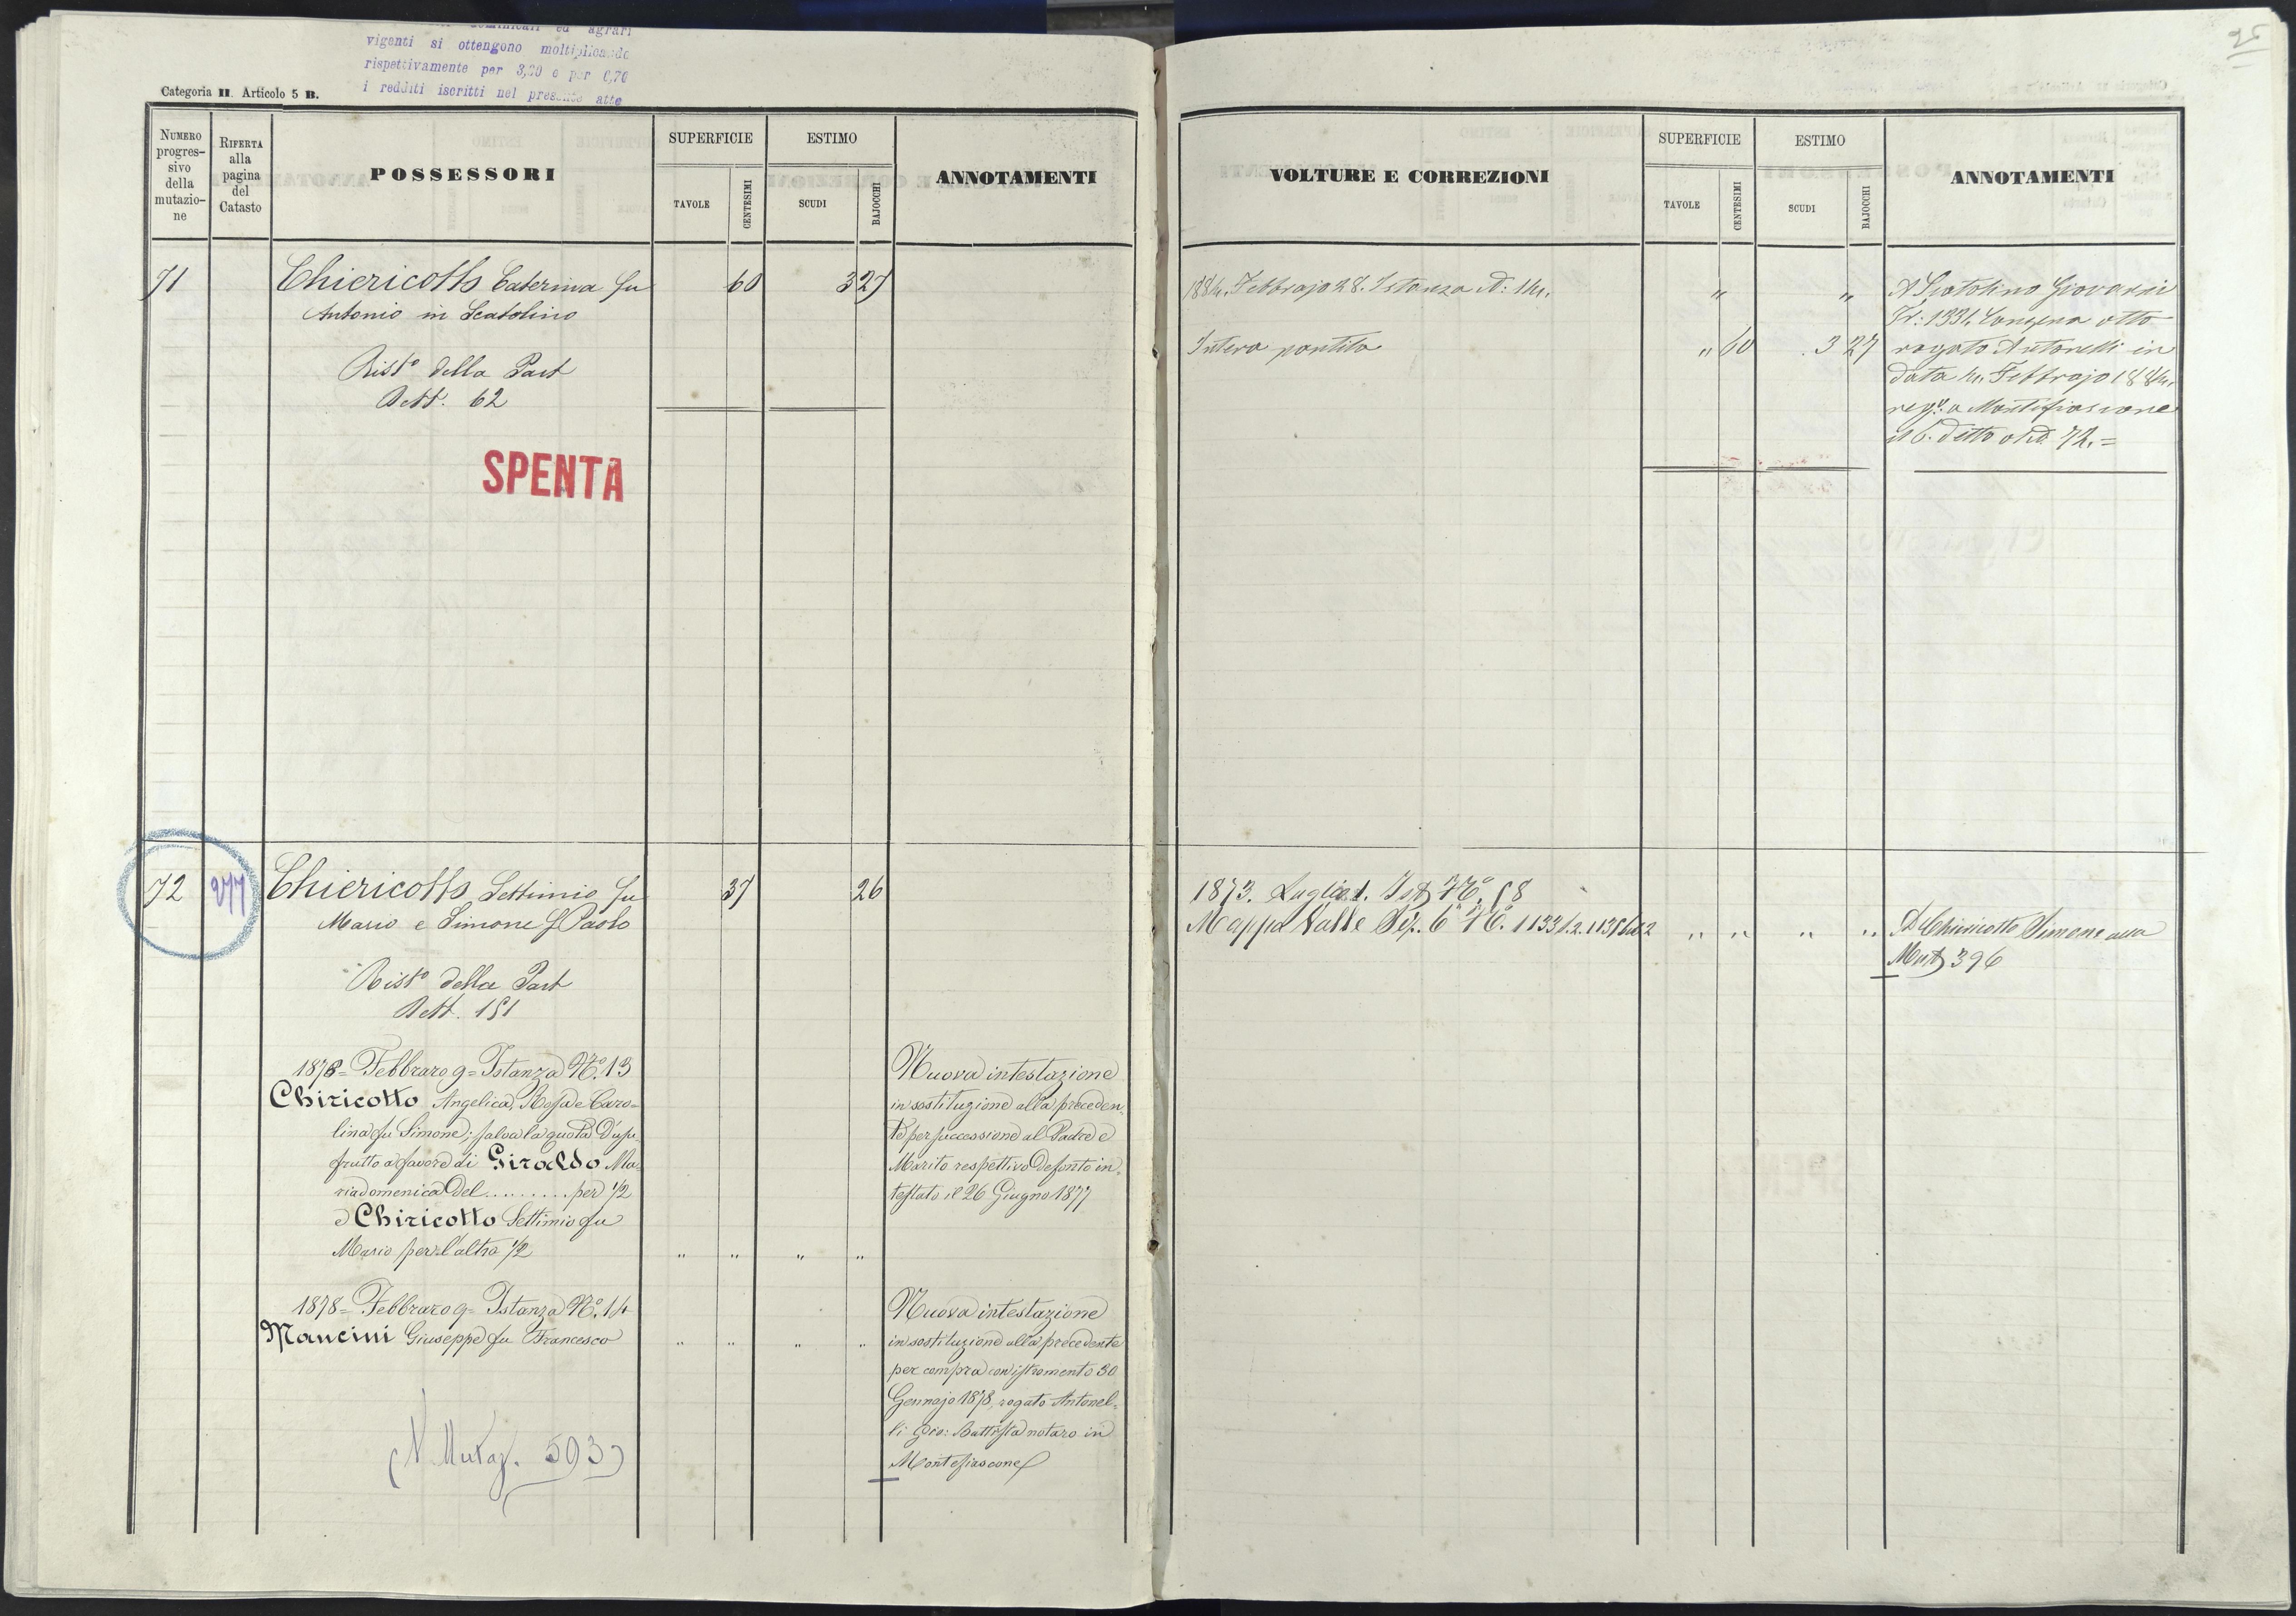 ed agrari
viganti si ottengono moltiplicando
rispettivamente per 3,20 e per 0,70
i redditi iscritti nel presente atto
Categoria II. Articolo 5 B.
25
NUMERO progres-sivo della mutazio-ne
RIFERTA alla pagina del Catasto
POSSESSORI
SUPERFICIE
TAVOLE
CENTESIMI
ESTIMO
SCUDI
BAJOCCHI
ANNOTAMENTI
VOLTURE E CORREZIONI
SUPERFICIE
TAVOLE
CENTESIMI
ESTIMO
SCUDI
BAJOCCHI
ANNOTAMENTI
71 Chiericotto Caterina fu 60 3 27
Antonio in Scatolino
Rist.o della Part
Rett. 62
SPENTA
1884. Febbrajo 28. Istanza N: 14. " "
Intera partita " 60 3 27
A Scatolino Giovanni
N: 1331. Consegna atto
rogato Antonelli in
data 4. Febbrajo 1884.
reg.o a Montefiascone
il 6. detto al N. 72.=
72 277 Chiericotto Settimio fu 37 26
Mario e Simone f Paolo
Rist.o della Part
Rett. 151
1873. Luglio 1. Ist N.o 58
Mappa Valle Sez. 6a N.o 1133 1.2. 1135 " " " "
A Chiricotto Simone alla
Mut 396
1878= Febbraro 9= Istanza N.o 13
Chiricotto Angelica, Rosa e Caro=
lina fu Simone; salva la quota d'usu=
frutto a favore di Giraldo Ma=
riadomenica del ......... per 1/2
e Chiricotto Settimio fu
Mario per l'altra 1/2 " " " "
Nuova intestazione
in sostituzione alla preceden=
te per successione al Padre e
Marito respettivo defonto in=
testato il 26 Giugno 1877
1878= Febbraro 9= Istanza N.o 14
Mancini Giuseppe fu Francesco " " " "
Nuova intestazione
in sostituzione alla precedente
per compra con istromento 30
Gennajo 1878, rogato Antonel=
li Gio: Battista notaro in
Montefiascone
(V. Mutaz. 593)